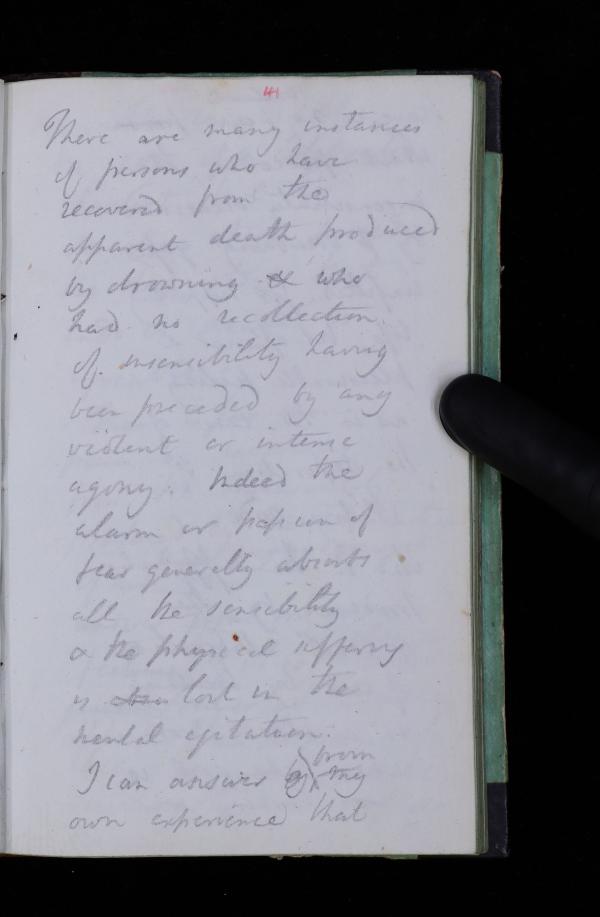 41
There are many instances
of persons who have
recovered from the
apparent death produced
by drowning & who
had no recollection
of insensibility having
been preceded by any
violent or intense
agony. Indeed the
alarm or passion of
fear generally absorbs
all the sensibility
& the physical suffering
is lost in the
mental agitation.
from
I can answer by my
own experience that